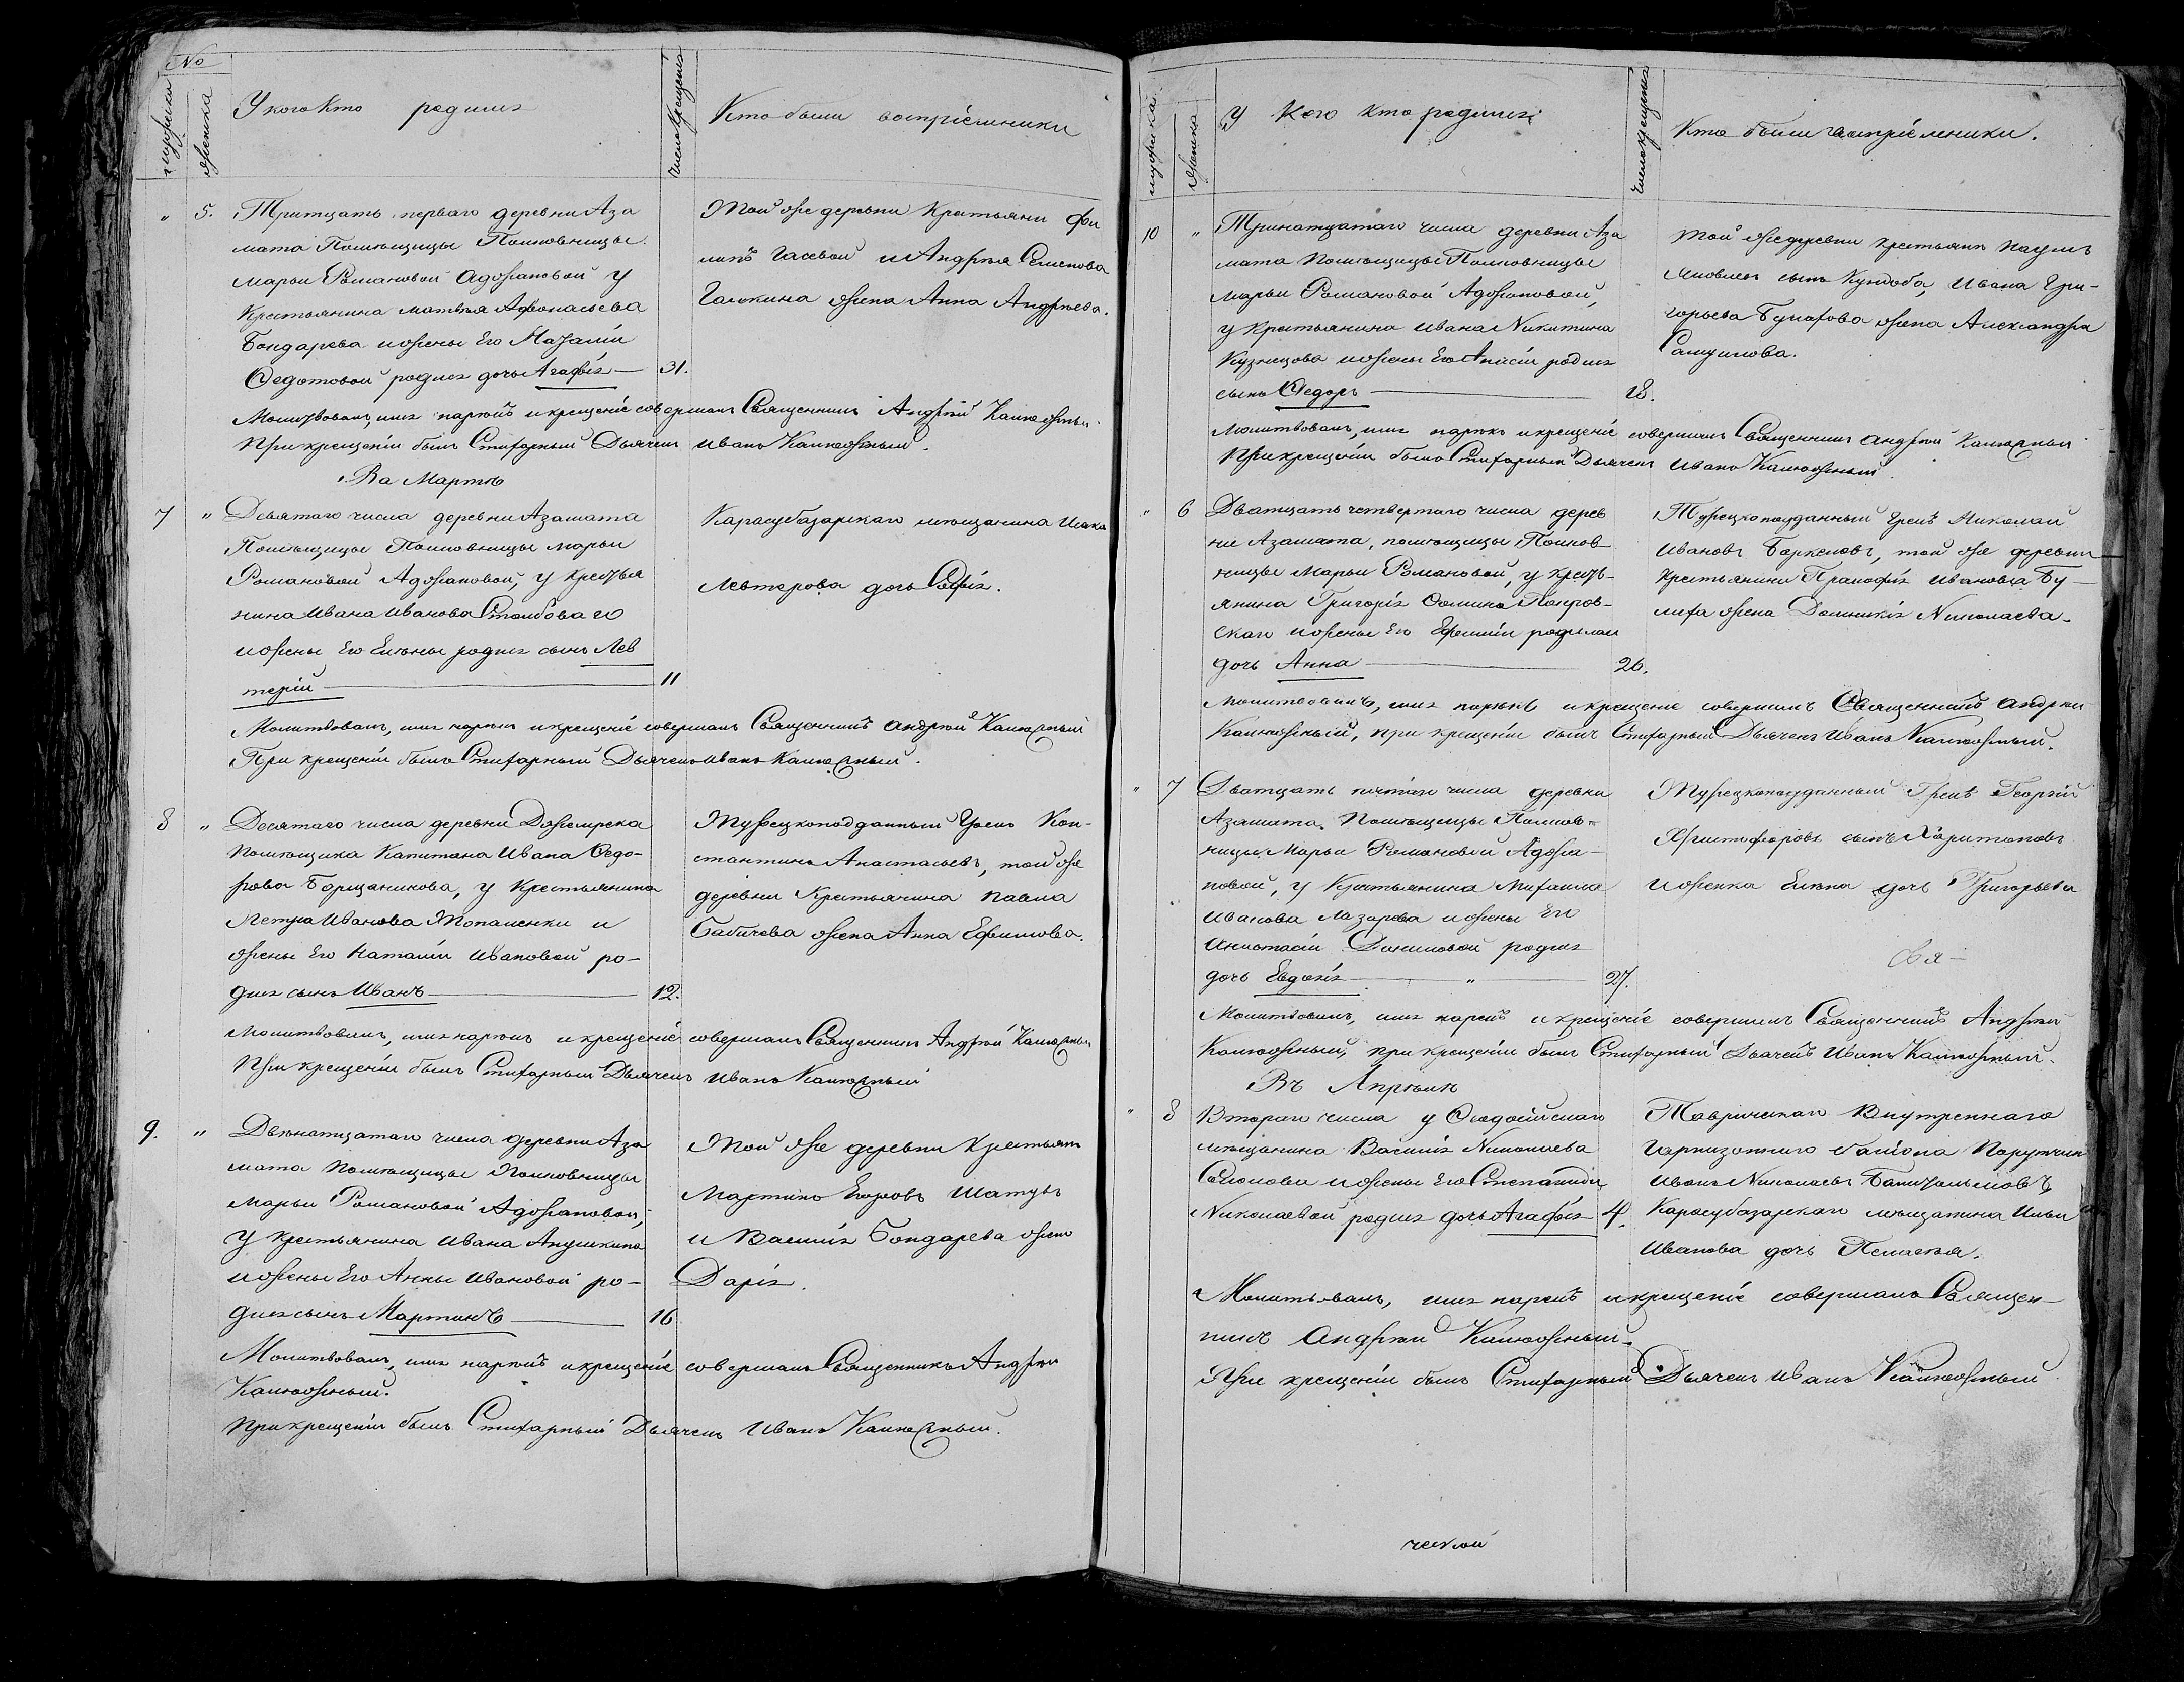 No
мужеска
женска
У кого кто родился
число крещенія
Кто были воспріемники
" 5. Тритцать перваго деревни Аза
мата Помѣщицы Полковницы
Марьи Романовой Аджановой у
Крестьянина Матвѣя Афонасьева
Бондарева и жены Его Наталіи
Федотовой родися дочь Агафія — 31.
Той же деревни Крестьяни Фи
липъ Гасевой и Андрѣя Семенова
Галкина жена Анна Андрѣева.
Молитвовалъ, имя нарѣкъ и крещеніе совершалъ Священникъ Андрѣй Калюжный.
При крещеніи былъ Стихарный Дьячекъ Иванъ Калюжный.
Въ Мартѣ
7 " Девятаго числа деревни Азамата
Помѣщицы Полковницы Марьи
Романовой Аджановой, у крестья
нина Ивана Иванова Столбоваго
и жены Его Елены родися сынъ Лев
терій — 11
Карасубазарскаго мещанина Исака
Левтерова дочь Софія.
Молитвовалъ, имя нарѣкъ и крещеніе совершалъ Священникъ Андрѣй Калюжный
При крещеніи былъ Стихарный Дьячекъ Иванъ Калюжный.
8 " Десятаго числа деревни Джемрека
Помѣщика Капитана Ивана Федо-
рова Борщаникова, у Крестьянина
Петра Иванова Топаленки и
жены Его Наталіи Ивановой ро-
дися сынъ Иванъ — 12.
Турецкоподданный Грекъ Кон-
стантинъ Анастасьевъ, той же
деревни Крестьянина Павла
Бабичева жена Анна Ефимова.
Молитвовалъ, имя нарѣкъ и крещеніе совершалъ Священникъ Андрѣй Калюжный
При крещеніи былъ Стихарный Дьячекъ Иванъ Калюжный
9. " Двѣнатцатаго числа деревни Аза
мата Помѣщицы Полковницы
Марьи Романовой Аджановой,
у крестьянина Ивана Анушкина
и жены Его Анны Ивановой ро-
дися сынъ Мартинъ — 16
Той же деревни Крестьянъ
Мартинъ Егоровъ Шатунъ
и Василія Бондарева жена
Дарія.
Молитвовалъ, имя нарѣкъ и крещеніе совершалъ Священникъ Андрѣй
Калюжный.
При крещеніи былъ Стихарный Дьячекъ Иванъ Калюжный.
мужеска
женска
У кого кто родился
число крещенія
Кто были воспріемники.
10 " Тринатцатаго числа деревни Аза
мата Помѣщицы Полковницы
Марьи Романовой Аджановой,
у крестьянина Ивана Никитина
Кузнецова и жены Его Анисіи родися
сынъ Федоръ — 18.
Той же деревни крестьянъ Наумъ
Яковлевъ сынъ Кундоба, Ивана Гри-
горьева Булахова жена Александра
Самуилова.
Молитвовалъ, имя нарѣкъ и крещеніе совершилъ Священникъ Андрѣй Калюжный
При крещеніи былъ Стихарный Дьячекъ Иванъ Калюжный.
" 6 Дватцать четвертаго числа дерев
ни Азамата, помѣщицы Полков-
ницы Марьи Романовой, у кресть-
янина Григорія Фомина Покров-
скаго и жены Его Ефиміи родилась
дочь Анна — 26.
Турецкоподданный Грекъ Николай
Ивановъ Баркеловъ, той же деревни
Крестьянина Пракофія Иванова Бу-
лиха жена Домникія Николаева.
Молитвовалъ, имя нарѣкъ и крещеніе совершилъ Священникъ Андрѣй
Калюжный, при крещеніи былъ Стихарный Дьячекъ Иванъ Калюжный.
" 7 Дватцать пятаго числа деревни
Азамата Помѣщицы Полков-
ницы Марьи Романовой Аджа-
новой, у Крестьянина Михаила
Иванова Лазарева и жены Его
Анастасіи Даниловой родися
дочь Евдокія — " 27.
Турецкоподданный Грекъ Георгій
Христофоровъ сынъ Харитоновъ
и женка Елена дочь Григорьева
Свя-
Молитвовалъ, имя нарекъ и крещеніе совершилъ Священникъ Андрѣй
Калюжный, при крещеніи былъ Стихарный Дьячекъ Иванъ Калюжный.
Въ Апрѣлѣ
" 8 Втораго числа у Феодосійскаго
мещанина Василія Николаева
Софонова и жены Его Степаниды
Николаевой родися дочь Агафія — 4.
Таврическаго Внутренняго
Гарнизоннаго баліона Порутчикъ
Иванъ Николаевъ Банизальмовъ,
Карасубазарскаго мещанина Ильи
Иванова дочь Пелагѣя.
Молитвовалъ, имя нарекъ и крещеніе совершалъ Священ-
никъ Андрѣй Калюжный.
При крещеніи былъ Стихарный Дьячекъ Иванъ Калюжный
ческой